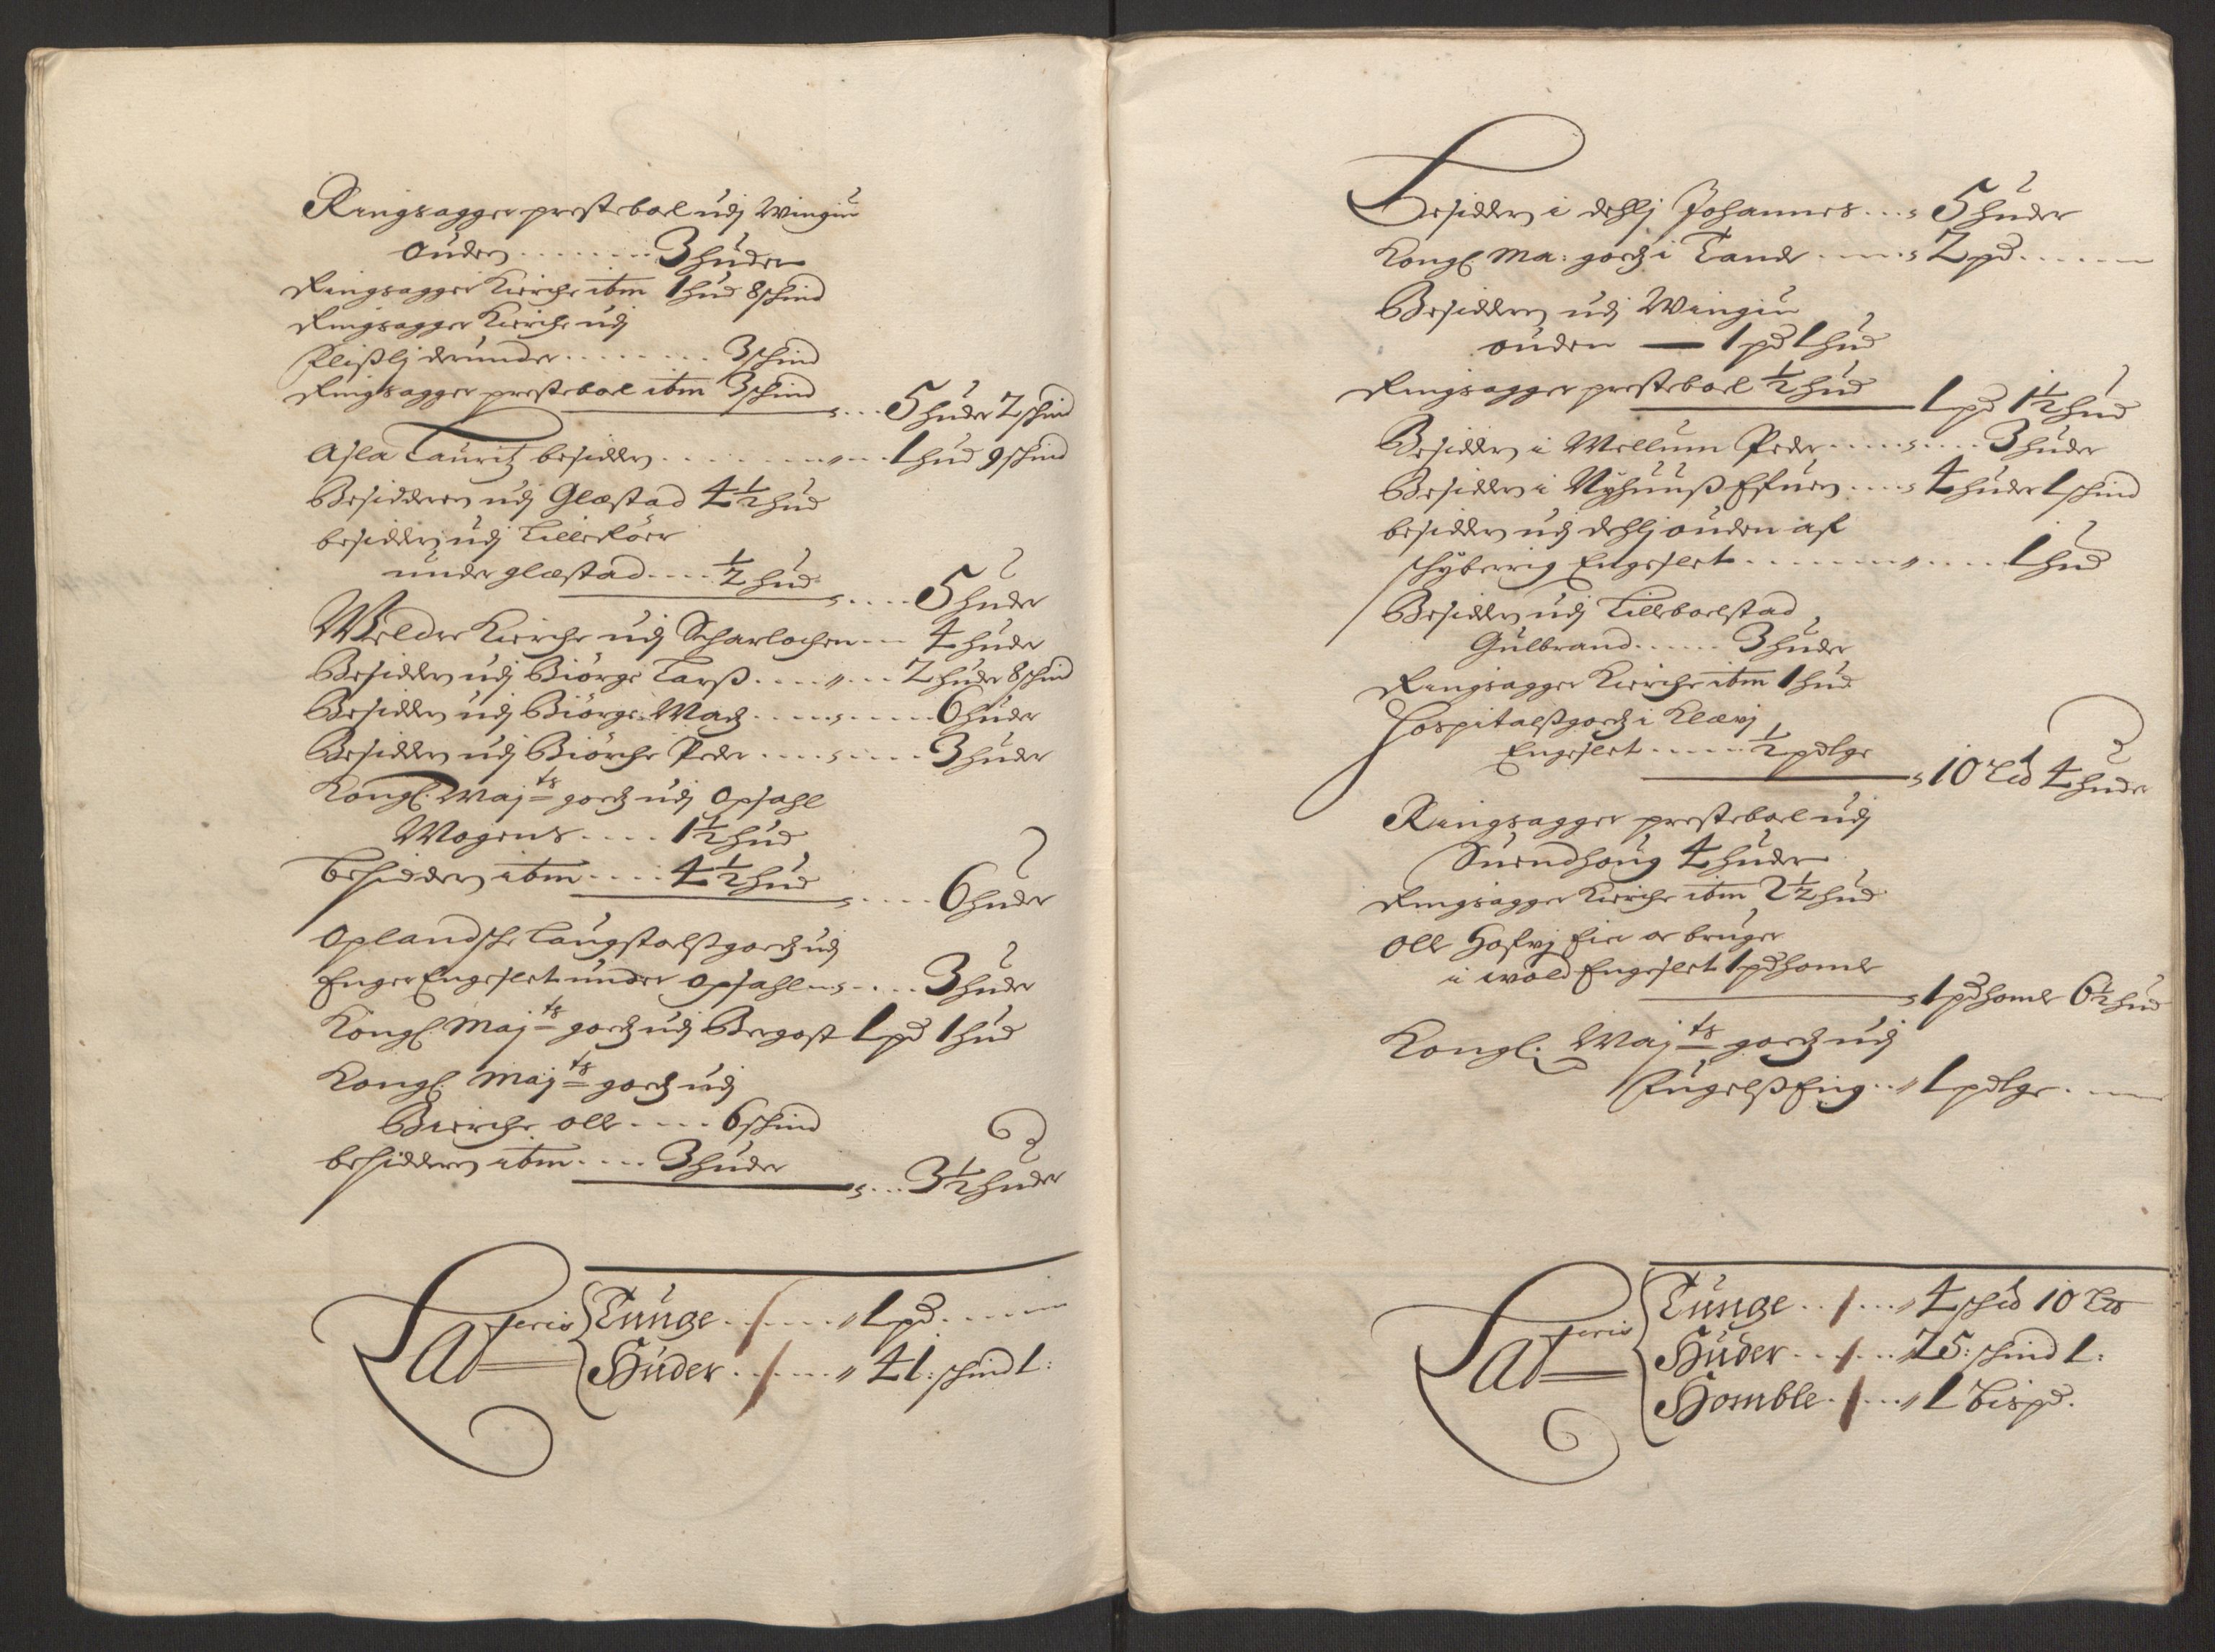 Ringsagger presteboel udj Wingiu
Ouden ........ 3 huder
Ringsagger Kierche ibm 1 hud 8 skind
Ringsagger Kierche udj
Flißlj derunder ........ 3 skind
Ringsagger presteboel ibm 3 skind
... 5 huder 2 skind
Asla Lauritz besidder ........ 1 hud 9 skind
Besidderen udj Glæstad 4½ hud
besidder udj Lillekiær
under glæstad .... ½ hud
.... 5 huder
Welder Kierche udj Scharlochen ... 4 huder
Besidder udj Biørge Larß ........ 2 huder 8 skind
Besidder udj Biørge Mads ........ 6 huder
Besidder udj Biørche Peder ........ 3 huder
Kongl. Maj:ts godz udj Opsahl
Mogens .... 1½ hud
besidderen ibm .... 4½ hud
.... 6 huder
Oplandsche Laugstoelß godz udj
Enger Engeslet under Opsahl .... 3 huder
Kongl. Maj:ts godz udj Bergost 1 pd 1 hud
Kongl. Maj:ts godz udj
Bierche Oll .... 6 skind
besidderen ibm .... 3 huder
... 3½ huder
Lateris
Tunge ........ 1 pd ......
Huder ........ 41: skind 1:
Besidder i dehlj Johannes ... 5 huder
Kongl. Ma: godz i Tande ..... 2 pd ......
Besidderen udj Wingiu
ouden — 1 pd 1 hud
Ringsagger presteboel ½ hud
1 pd 1½ hud
Besidder i Mellum Peder ........ 3 huder
Besidder i Nyhuuß Efuen .... 4 huder 1 skind
besidder udj dehlj ouden af
schyberrig Engeslet ........ 1 hud
Besidder udj Lilleboelstad
Gulbrand ...... 3 huder
Ringsagger Kierche ibm 1 hud
Hospitalß godz i Klævj
Engeslet ..... ½ pd tge
10 Lid 4 huder
Ringsagger presteboel udj
Suendhoug 4 huder
Ringsagger Kierche ibm 2½ hud
Oll Hofvj Eier oc bruger
i wold Engeslet 1 pd homle
1 pd homle 6½ hud
Kongl. Maj:ts godz udj
Fugelß Eng .. 1 pd tge ....
Lateris
Tunge ..... 4 skid 10 Lid
Huder ...... 25: skind 1:
Homble ..... 1 bispd.